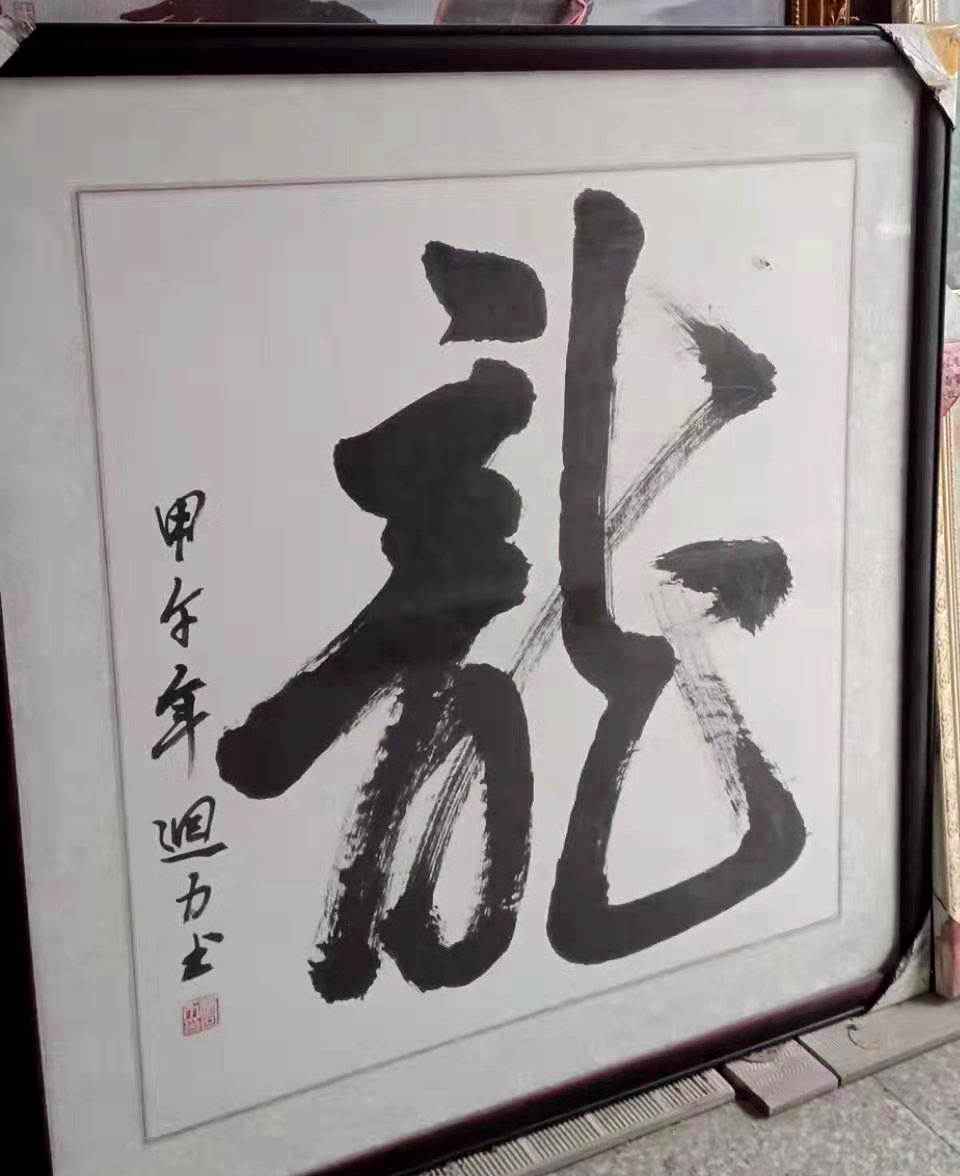 龍
甲午年迴力书